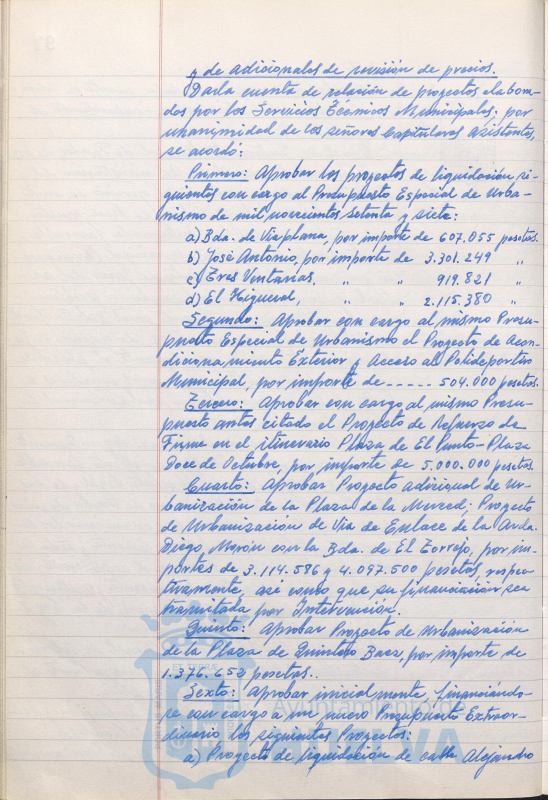 y de adicionales de revisión de precios.
Dada cuenta de relación de proyectos elabora-
dos por los Servicios Técnicos Municipales, por
unanimidad de los señores Capitulares asistentes,
se acordó:
Primero: Aprobar los proyectos de liquidación si-
guientes con cargo al Presupuesto Especial de Urba-
nismo de mil novecientos setenta y siete:
a) Bda. de Viaplana, por importe de 607.055 pesetas.
b) José Antonio, por importe de 3.301.249 "
c) Tres Ventanas, " " 919.821 "
d) El Higueral, " " 2.115.380 "
Segundo: Aprobar con cargo al mismo Presu-
puesto Especial de Urbanismo el Proyecto de Acon-
dicionamiento Exterior y Acceso al Polideportivo
Municipal, por importe de ----- 504.000 pesetas.
Tercero: Aprobar con cargo al mismo Presu-
puesto antes citado el Proyecto de Refuerzo de
Firme en el itinerario Plaza de El Punto-Plaza
Doce de Octubre, por importe de 5.000.000 pesetas
Cuarto: Aprobar Proyecto adicional de Ur-
banización de la Plaza de la Merced; Proyecto
de Urbanización de Via de Enlace de la Avda.
Diego Morón con la Bda. de El Torrejo, por im-
portes de 3.114.586 y 4.097.500 pesetas respec-
tivamente, así como que su financiación sea
tramitada por Intervención.
Quinto: Aprobar Proyecto de Urbanización
de la Plaza de Quintero Baez, por importe de
1.376.652 pesetas..
Sexto: Aprobar inicialmente, financiándo-
se con cargo a un nuevo Presupuesto Extraor-
dinario los siguientes Proyectos:
a) Proyecto de liquidación de calle Alejandro
Ayuntamiento de
HUELVA